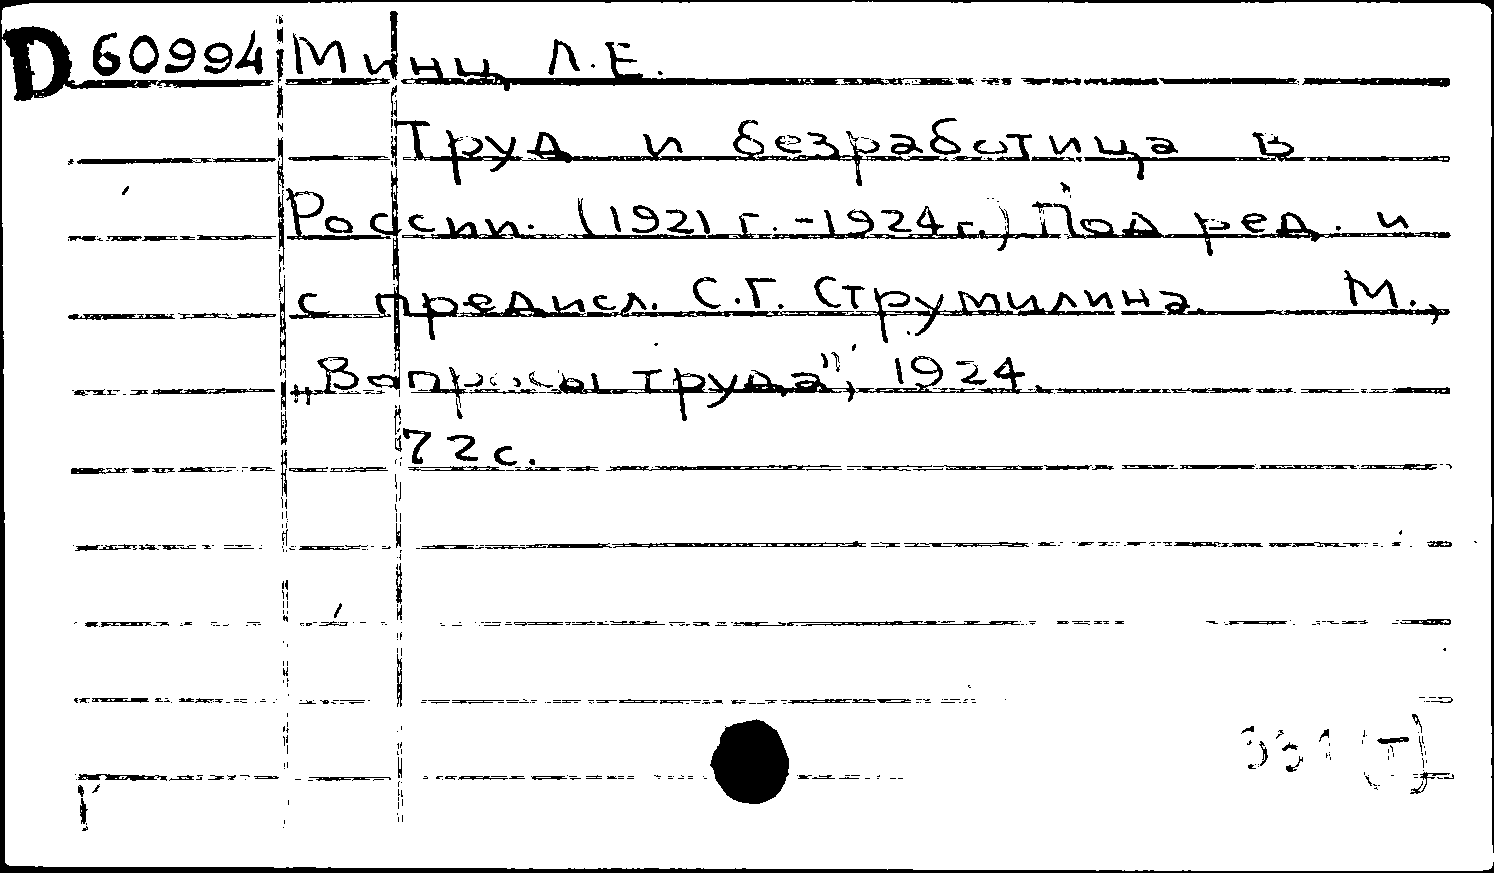 D 60994 Минц, Л.Е.
Труд и безработица в
России. (1921 г. - 1924 г.) Под ред. и
с предисл. С.Г. Струмилина. М.,
„Вопросы труда”, 1924.
72 с.
331 (Т)